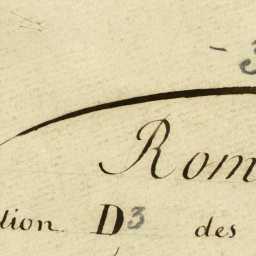 - 3
Rom
tion D3 des